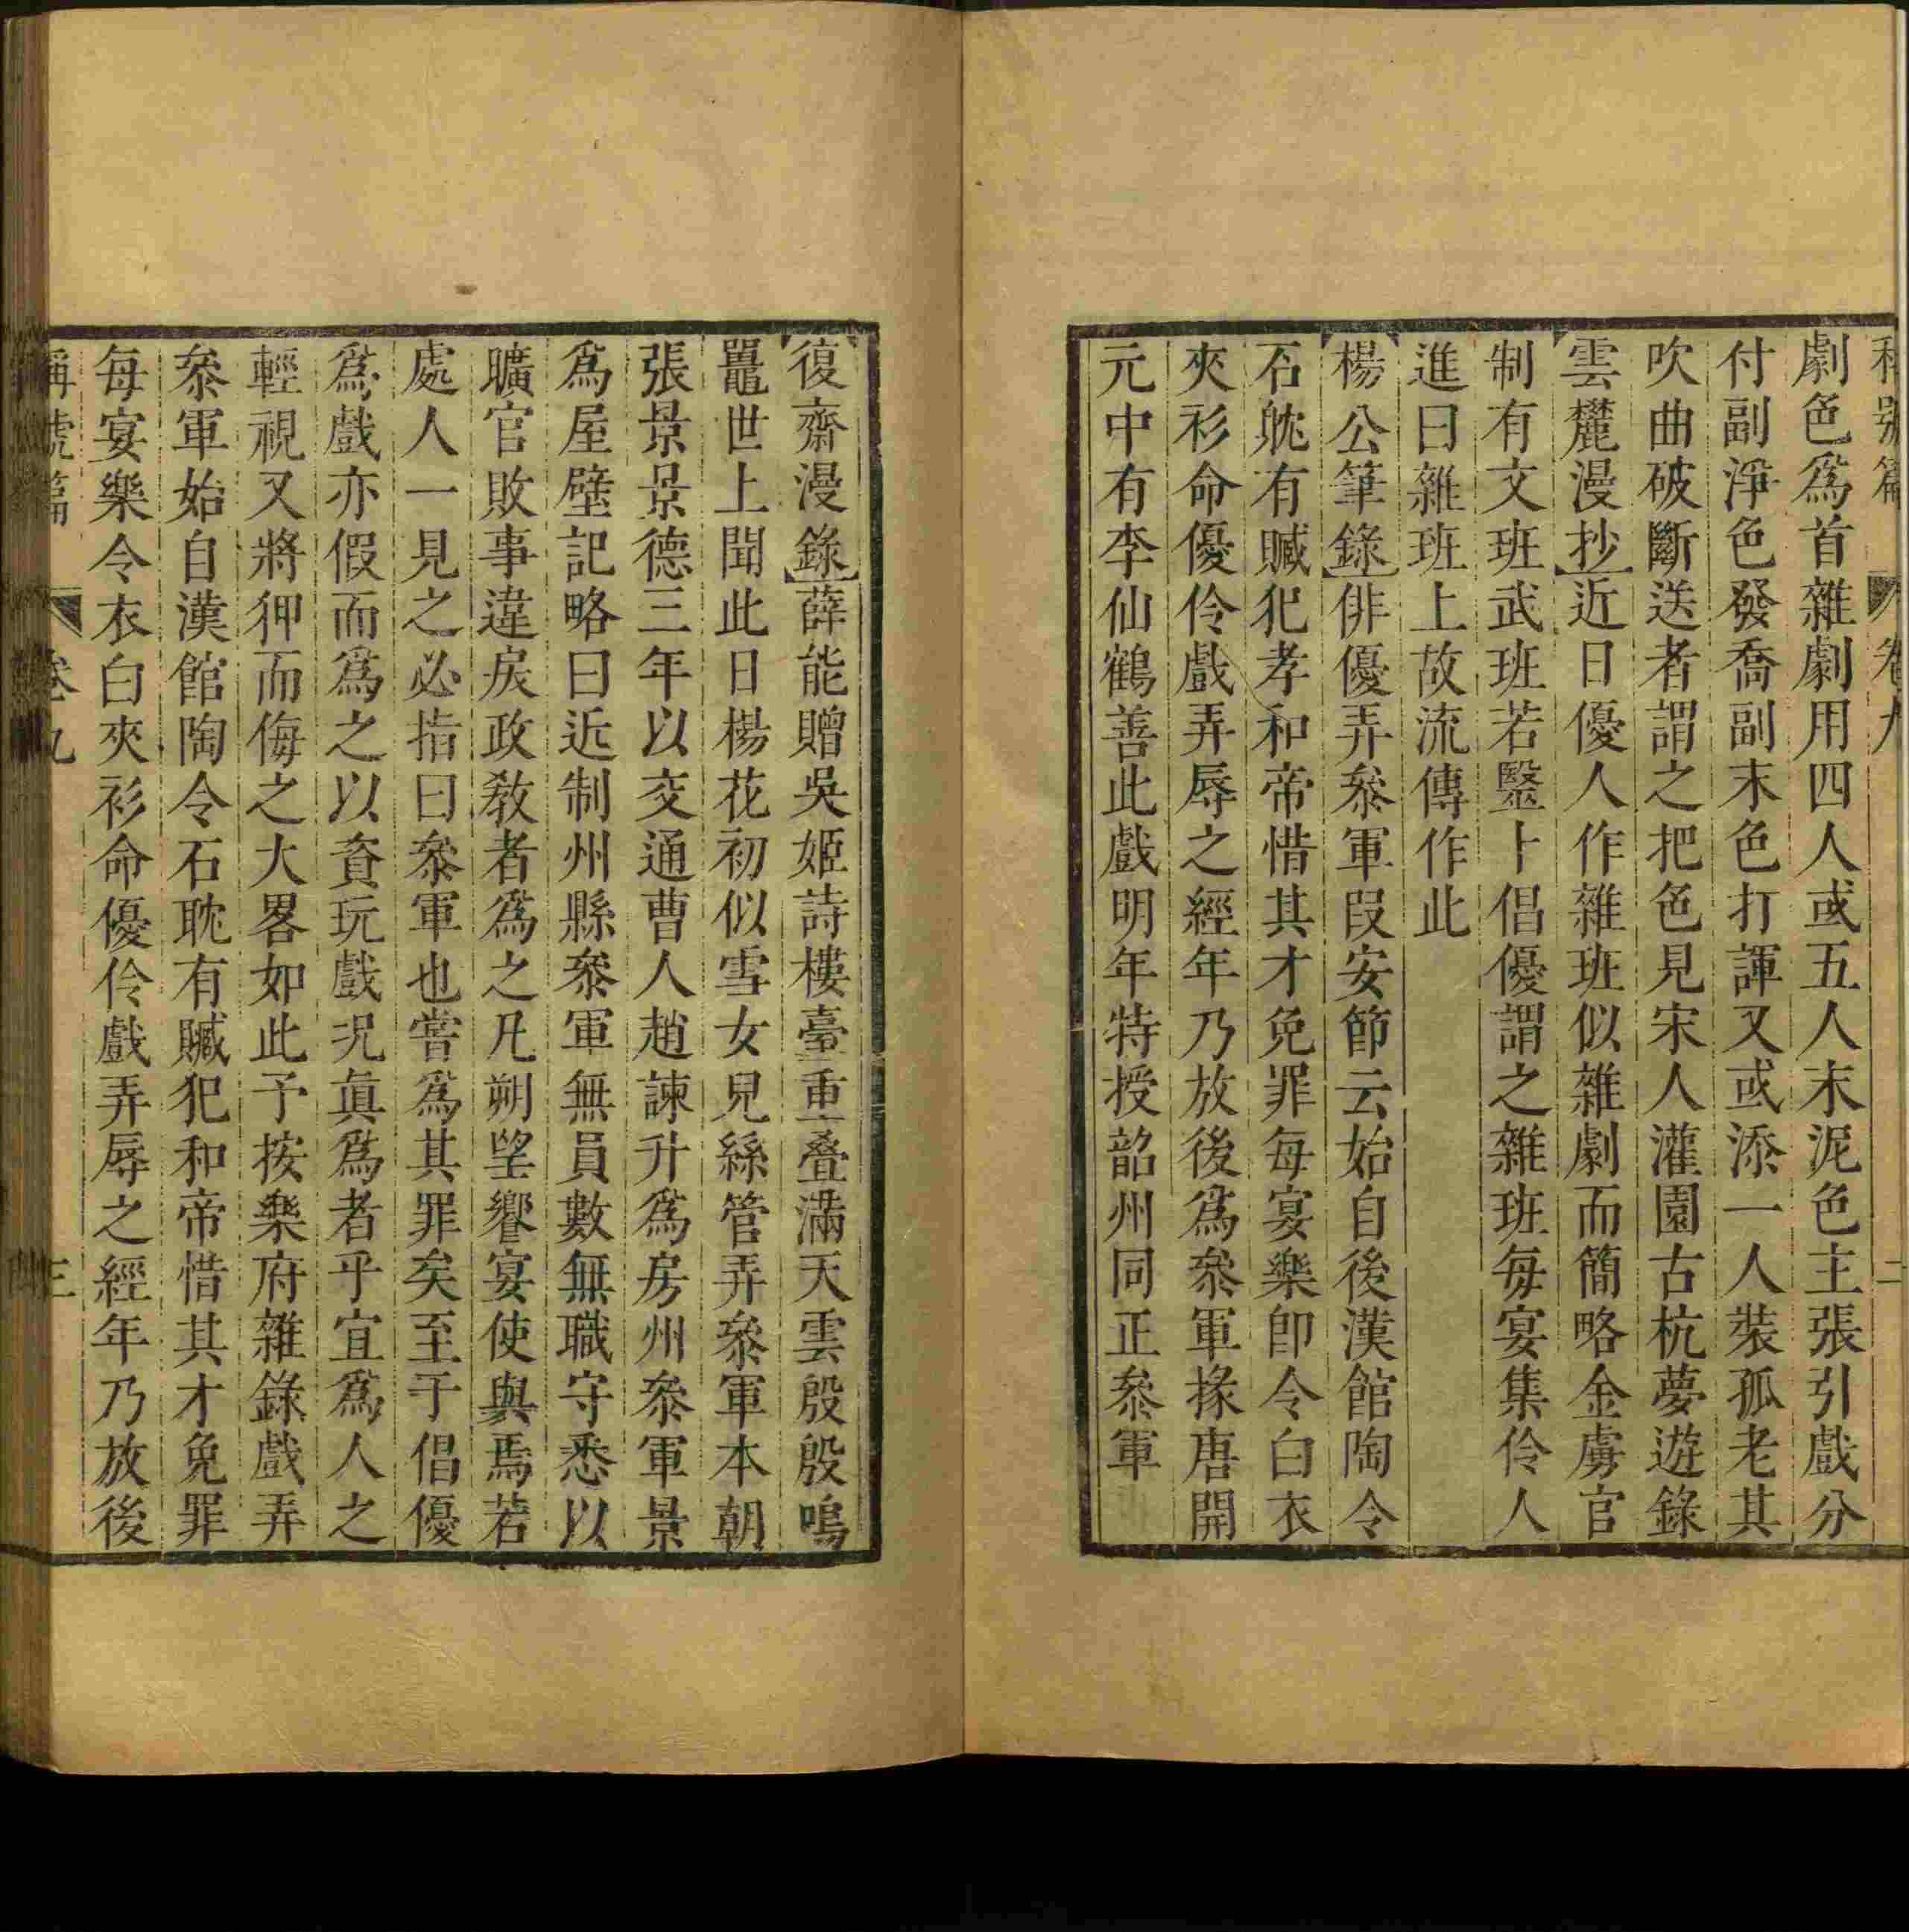 稱號篇 卷九 二
劇色爲首雜劇用四人或五人末泥色主張引戲分
付副淨色發喬副末色打諢又或添一人裝孤老其
吹曲破斷送者謂之把色見宋人灌園古杭夢遊錄
雲麓漫抄近日優人作雜班似雜劇而簡略金虜官
制有文班武班若毉卜倡優謂之雜班每宴集伶人
進曰雜班上故流傳作此
楊公筆錄俳優弄叅軍叚安節云始自後漢館陶令
石躭有贓犯孝和帝惜其才免罪每宴樂卽令白衣
夾衫命優伶戲弄辱之經年乃放後爲叅軍掾唐開
元中有李仙鶴善此戲明年特授韶州同正叅軍
復齋漫錄薛能贈吳姬詩樓臺重疊滿天雲殷殷鳴
鼉世上聞此日楊花初似雪女兒絲管弄叅軍本朝
張景景德三年以交通曹人趙諫升爲房州叅軍景
爲屋壁記略曰近制州縣叅軍無員數無職守悉以
曠官敗事違戾政敎者爲之凡朔望饗宴使與焉若
處人一見之必指曰叅軍也嘗爲其罪矣至于倡優
爲戲亦假而爲之以資玩戲况眞爲者乎宜爲人之
輕視又將狎而侮之大畧如此予按樂府雜錄戲弄
叅軍始自漢館陶令石耽有贓犯和帝惜其才免罪
每宴樂令衣白夾衫命優伶戲弄辱之經年乃放後
稱號篇 卷九 三